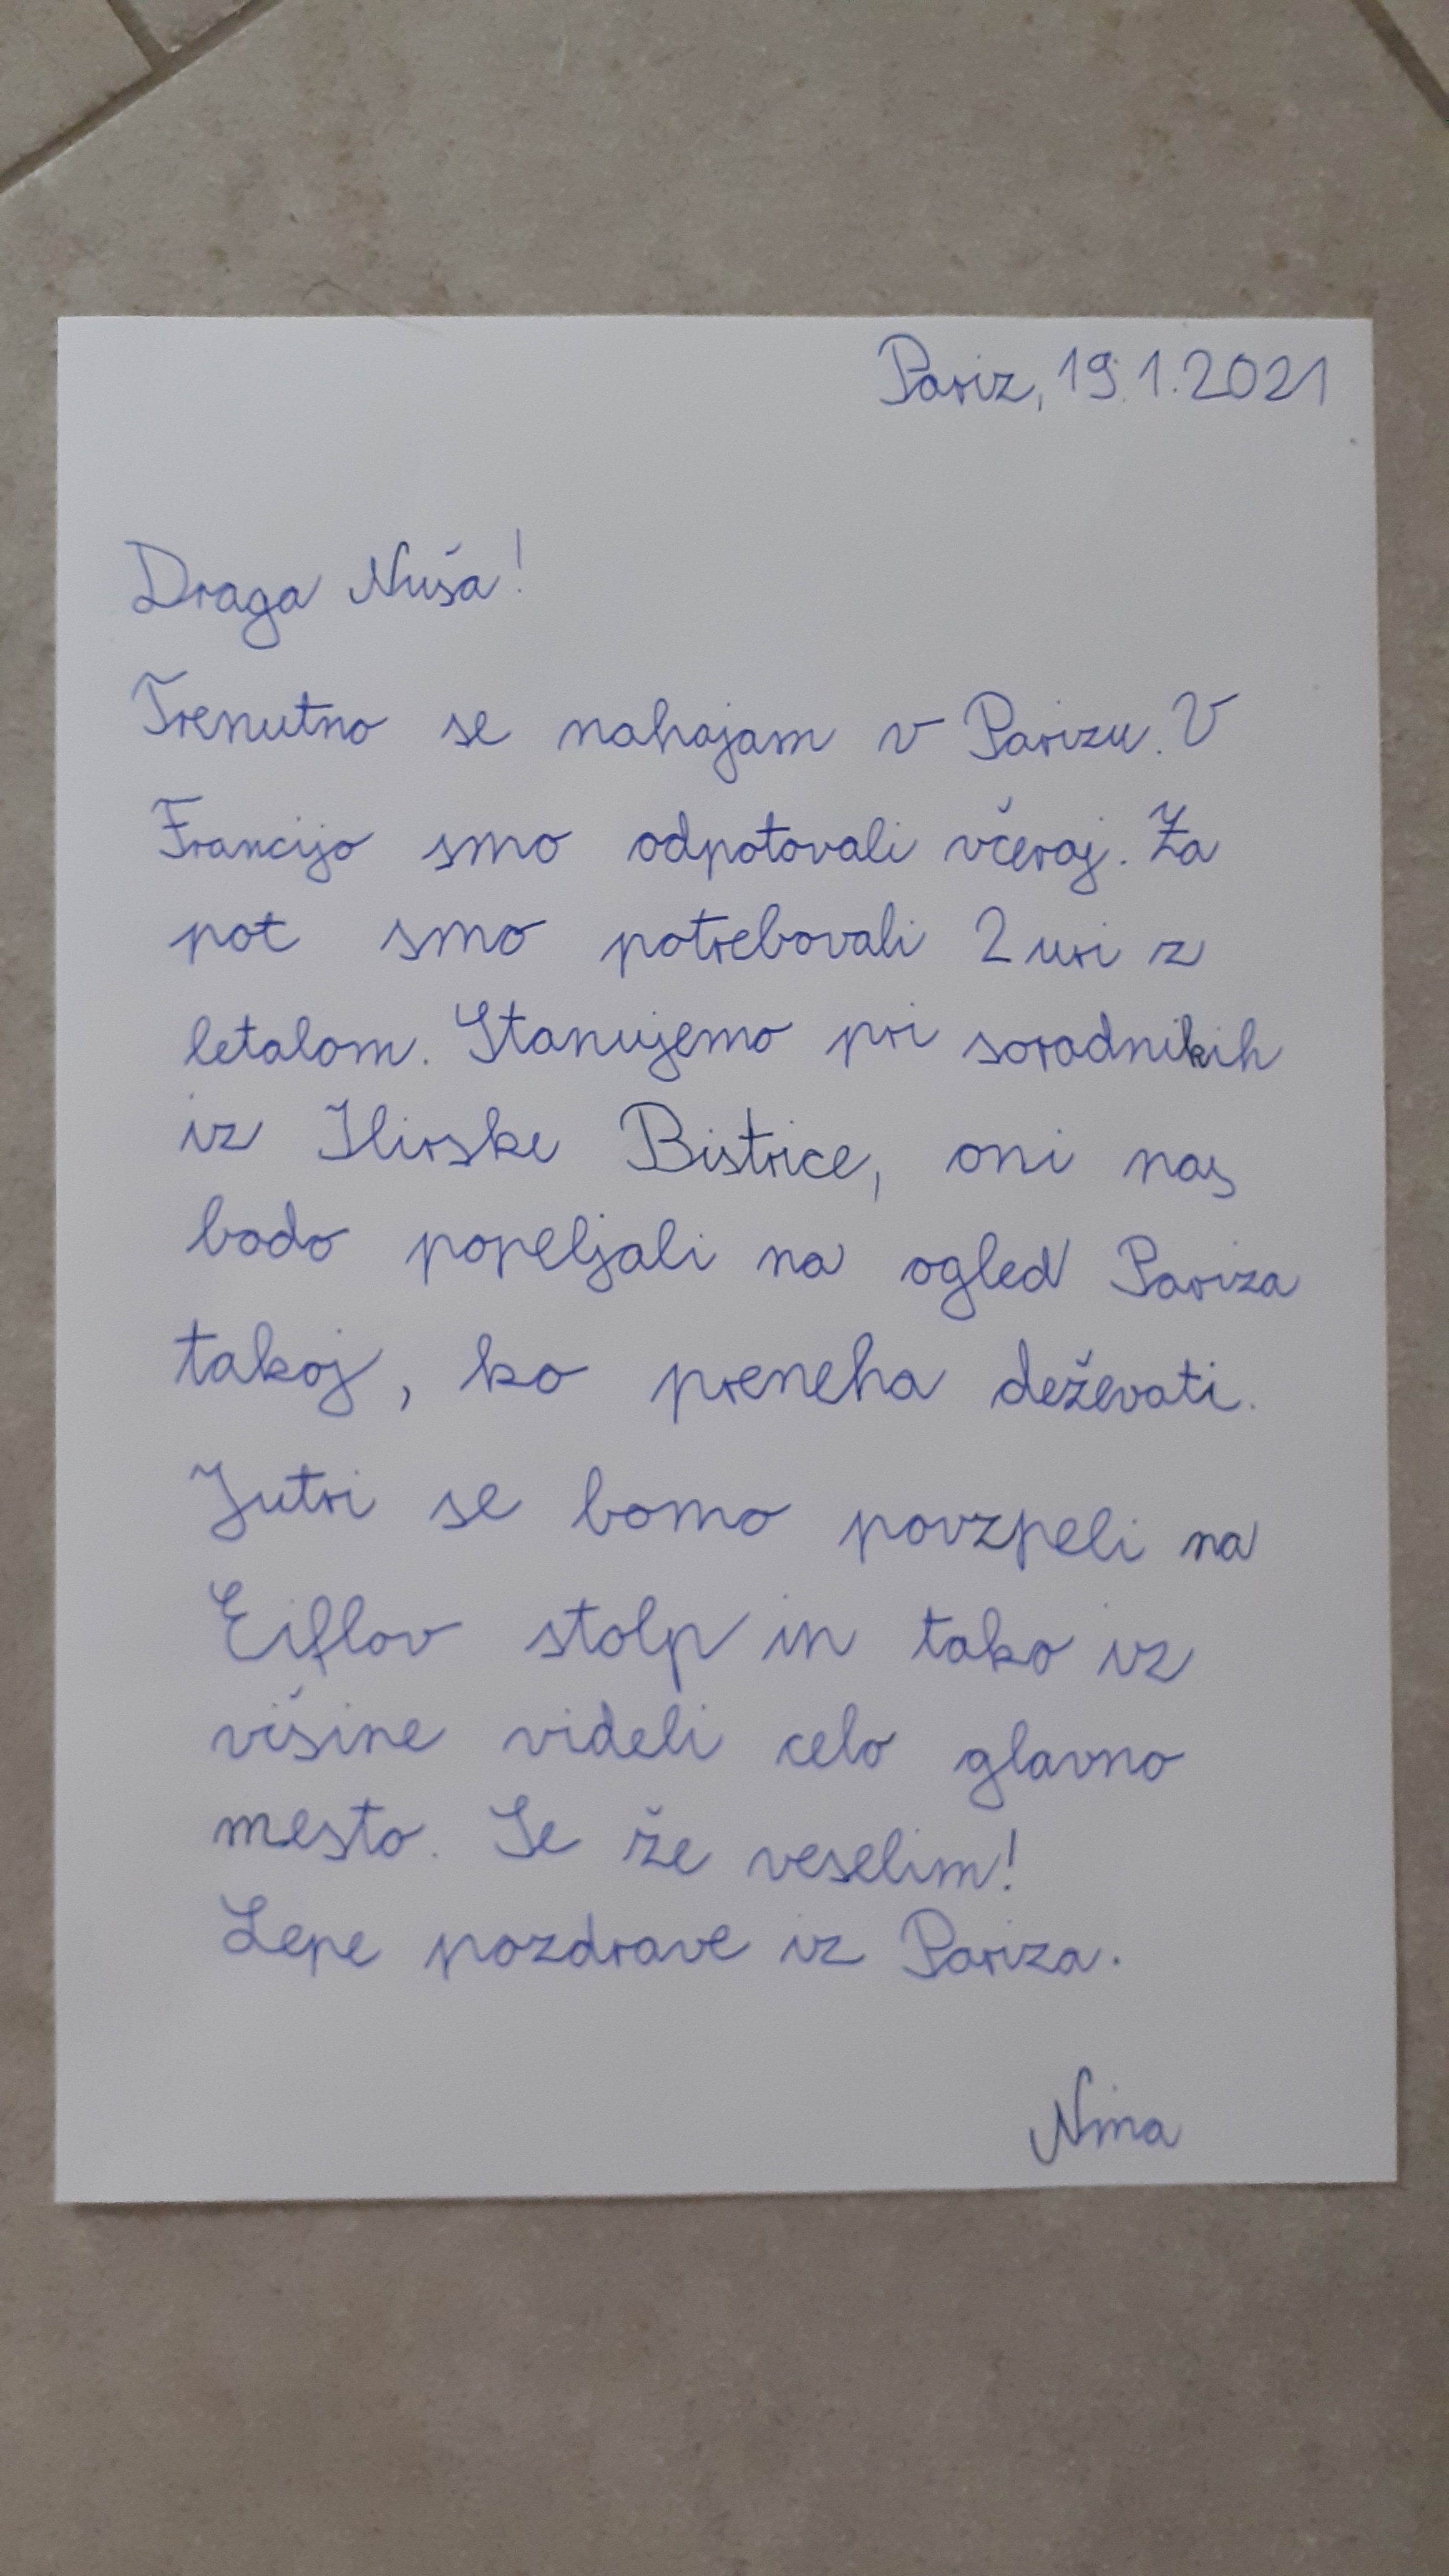 Pariz, 19.1.2021
Draga Nuša!
Trenutno se nahajam v Parizu. V
Francijo smo odpotovali včeraj. Za
pot smo potrebovali 2 uri z
letalom. Stanujemo pri sorodnikih
iz Ilirske Bistrice, oni nas
bodo popeljali na ogled Pariza
takoj, ko preneha deževati.
Jutri se bomo povzpeli na
Eiflov stolp in tako iz
višine videli celo glavno
mesto. Se že veselim!
Lepe pozdrave iz Pariza.
Nina